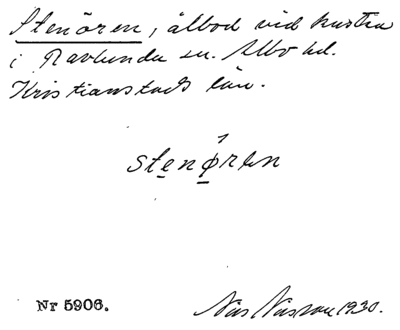 Stenören, ålbod vid kusten
i Ravlunda sn. Albo hd.
Kristianstads län.
stenǿrɛn
Nr 5906.
1930.